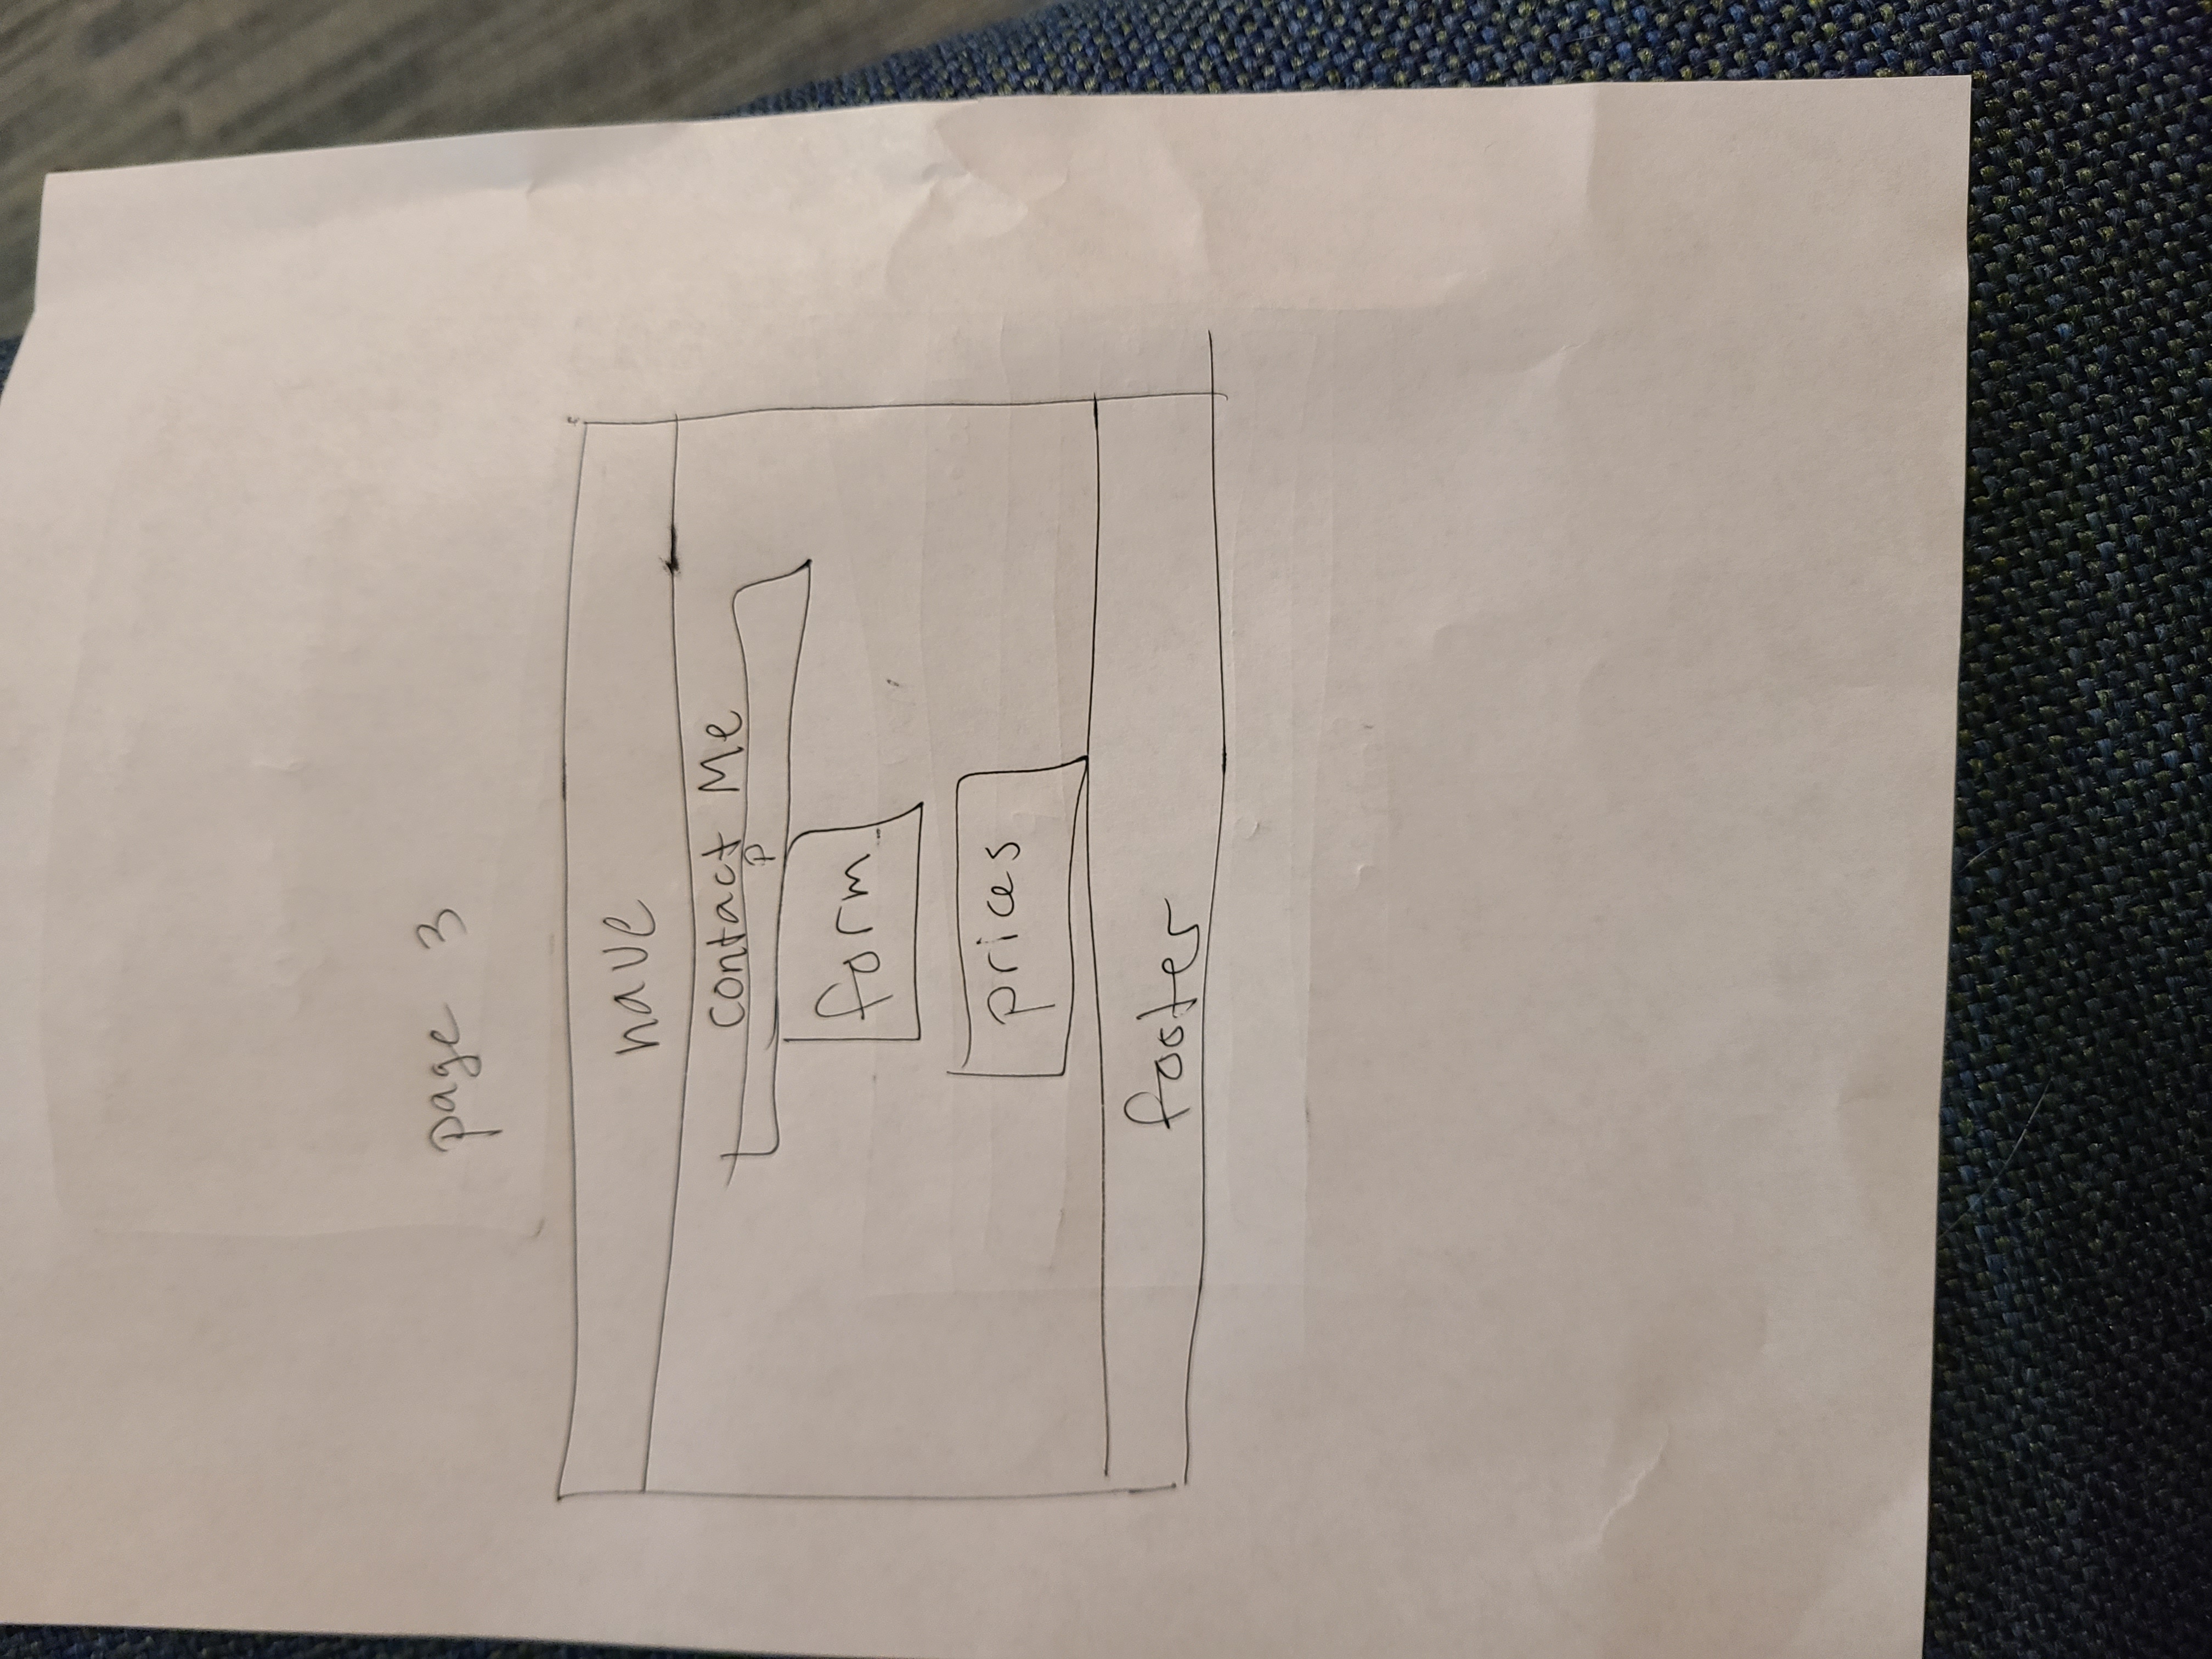 page 3
nave
Contact Me
P
form
prices
footer